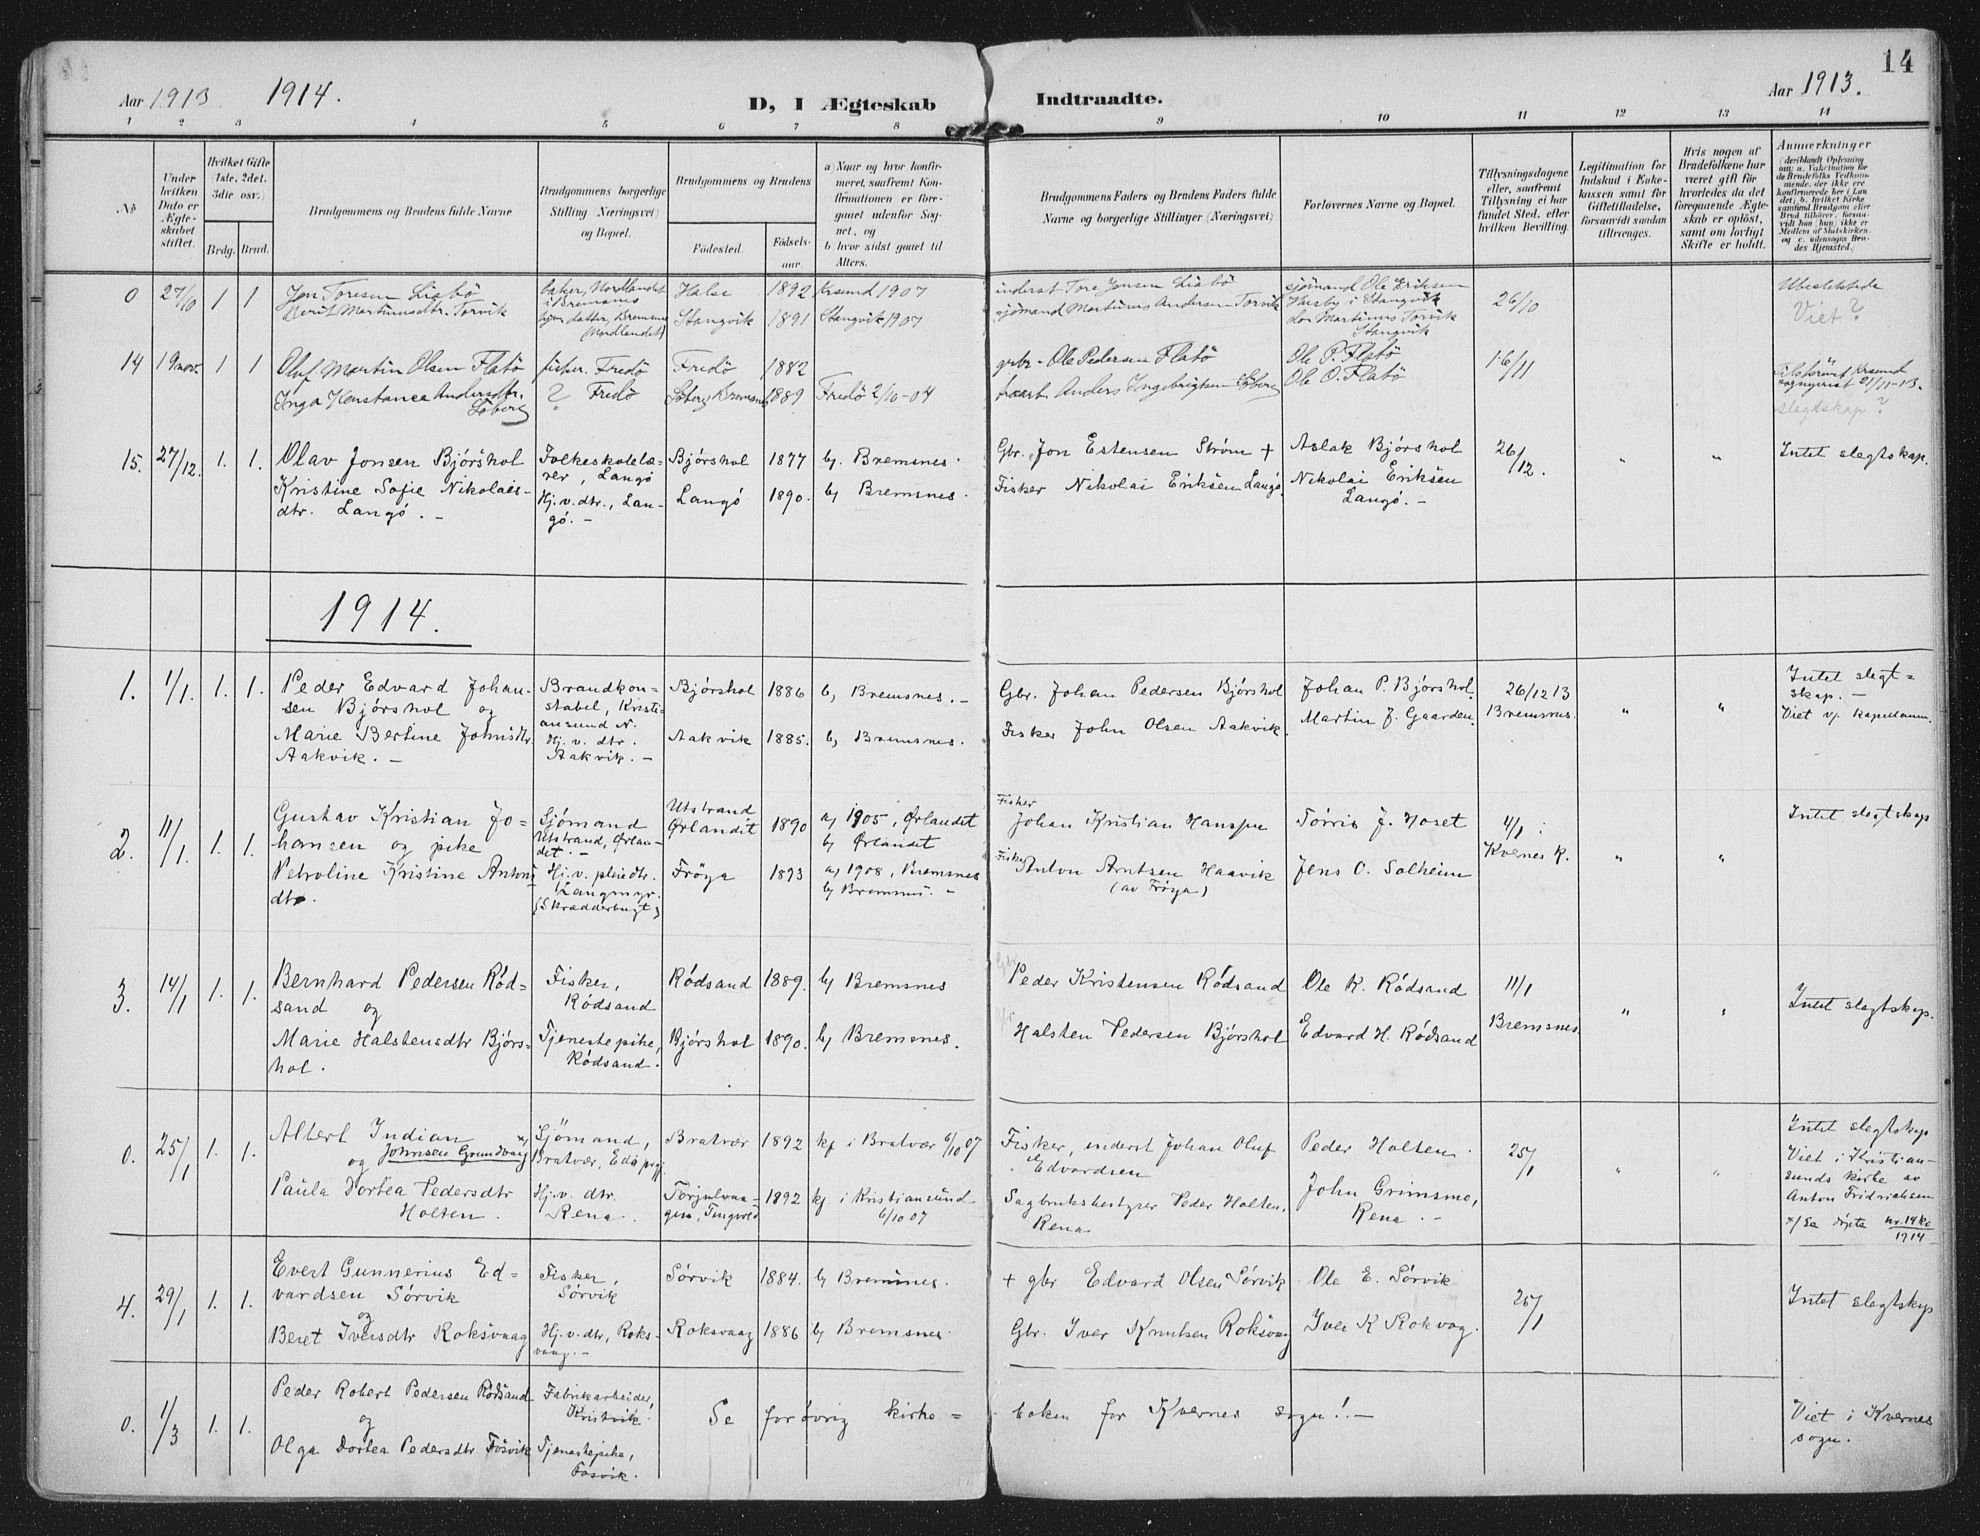 14
Aar 1913. 1914.
D, I Ægteskab Indtraadte.
Aar 1913.
1 2 3 4 5 6 7 8 9 10 11 12 13 14
No
Under hvilken Dato er Ægteskabet stiftet.
Hvilket Gifte (1ste, 2det, 3die osv.)
Brdg. Brud.
Brudgommens og Brudens fulde Navne
Brudgommens borgerlige Stilling (Næringsvei) og Bopæl.
Brudgommens og Brudens
Fødested.
Fødselsaar.
a) Naar og hvor konfirmeret, saafremt Konfirmationen er foregaaet udenfor Sognet, og
b) hvor sidst gaaet til Alters.
Brudgommens Faders og Brudens Faders fulde Navne og borgerlige Stillinger (Næringsvei)
Forlovernes Navne og Bopæl.
Tillysningsdagene eller, saafremt Tillysning ei har fundet Sted, efter hvilken Bevilling.
Legitimation for Indskud i Enkekassen samt for Giftetilladelse, forsaavidt saadan tiltrænges.
Hvis nogen af Brudefolkene har været gift før hvorledes da det foregaaende Ægteskab er opløst, samt om lovligt Skifte er holdt.
Anmærkninger
0 27/10 1 1
Jon Toresen Liabö
Berit Martinusdtr. Torvik
baker, Nordlandet
i Bremsnes
hjv. datter, Bremsnes
(Nordlandet)
Halse 1892 Krsund 1907
Stangvik 1891 Stangvik 1907
inderst Tore Jonsen Liabö
sjömand Martinus Andersen Torvik
sjömand Ole Eriksen
Husby i Stangvik
Martinus Torvik
Stangvik
26/10
Ubeslektede
Viet?
14 19 nov. 1 1
Oluf Martin Olsen Flatö
Inga Konstance Andersdtr.
Söberg
fisker. Fredö
? Fredö
Fredö 1882
Söberg, Bremsnes 1889 Fredö 2/10-04
gbr. Ole Pedersen Flatö
Anders Ingebrigtsen Söberg
Ole P. Flatö
Ole O. Flatö
16/11
Krsund
21/11-13.
slegtskap?
15. 27/12. 1. 1.
Olav Jonsen Bjórshol
Kristine Sofie Nikolais-
dtr. Langó. -
Folkeskolelæ-
rer, Langó
Hj.v. dtr., Lan-
gó. -
Bjórshol 1877 b) Bremsnes.
Langó 1890. b) Bremsnes.
Gbr. Jon Estensen Stróm +
Fisker Nikolai Eriksen Langó.
Aslak Bjórshol
Nikolai Eriksen
Langó. -
26/12. " "
Intet slegtskap.
1914.
1. 1/1. 1. 1.
Peder Edvard Johan-
sen Bjórshol og
Marie Bertine Johnsdtr.
Aakvik. -
Brandkon-
stabel, Kristi-
ansund N.
Hj. v. dtr.
Aakvik. -
Bjórshol 1886 b) Bremsnes. -
Aakvik 1885. b) Bremsnes.
Gbr. Johan Pedersen Bjórshol
Fisker John Olsen Aakvik.
Johan P. Bjórshol.
Martin J. Gaarden.
26/12 13
Bremsnes. " "
Intet slegt=
skap. -
Viet v/ kapellanen.
2. 11/1. 1. 1.
Gustav Kristian Jo=
hansen og pike
Petroline Kristine Antons
dtr.
Sjómand
Utstrand, Ørlan-
det. -
Hj.v. pleiedtr.
Langmyr
(Skrædderbugt)
Utstrand
Ørlandet 1890 a) 1905, Ørlandet
b) Ørlandet
Fróya 1893 a) 1908, Bremsnes
b) Bremsnes. -
Fisker
Johan Kristian Hansen
Fisker Anton Arntsen Haavik
(av Fróya)
Tórris J. Hoset
Jens O. Solheim
4/1 :
Kvernes K. " "
Intet slegtskap
3. 14/1 1. 1.
Bernhard Pedersen Ród=
sand og
Marie Halstensdtr Bjórs-
hol.
Fisker,
Ródsand
Tjenestepike,
Ródsand.
Ródsand 1889. b) Bremsnes
Bjórshol 1890. b) Bremsnes.
Gbr.
Peder Kristensen Ródsand
Halsten Pedersen Bjórshol
Ole K. Ródsand
Edvard H. Ródsand
11/1
Bremsnes. " "
Intet slegtskap.
0. 25/1 1. 1.
Albert Indian x)
og Johnsen Grundvaag
Paula Dortea Pedersdtr
Holten.
Sjömand,
Bratvær, Edö pgj.
Hj.v. dtr.
Rena.
Bratvær 1892 kf. i Bratvær 6/10 07
Torjulvaa-
gen, Tingvold 1892 kf. i Kristiansund
6/10 07
Fisker, inderst Johan Oluf
Edvardsen
Sagbruksbestyrer Peder Holten,
Rena
Peder Holten.
John Grimsmo,
Rena. -
25/1 " "
Intet slegtskap
Viet i Kristian-
sunds kirke av
Anton Fridrichsen
x/ Se döpte nr. 14
1914
4. 29/1 1. 1.
Evert Gunnerius Ed=
vardsen Sórvik
og
Beret Iversdtr Roksvaag
Fisker,
Sórvik
Hj.v. dtr, Roks-
vaag. -
Sórvik 1884. b) Bremsnes.
Roksvaag 1886 b) Bremsnes.
+ gbr Edvard Olsen Sórvik
Gbr. Iver Knutsen Roksvaag
Ole E. Sórvik
Iver K Rokvag.
25/1
Intet slegtskap
0. 1/3 1. 1.
Peder Robert Pedersen Ródsand
og
Olga Dortea Pedersdtr Fosvik
Fabrikarbeider,
Kristvik.
Tjenestepike,
Fosvik.
Se forövrig kirke =
boken for Kvernes sogn! -
Viet i Kvernes
sogn.